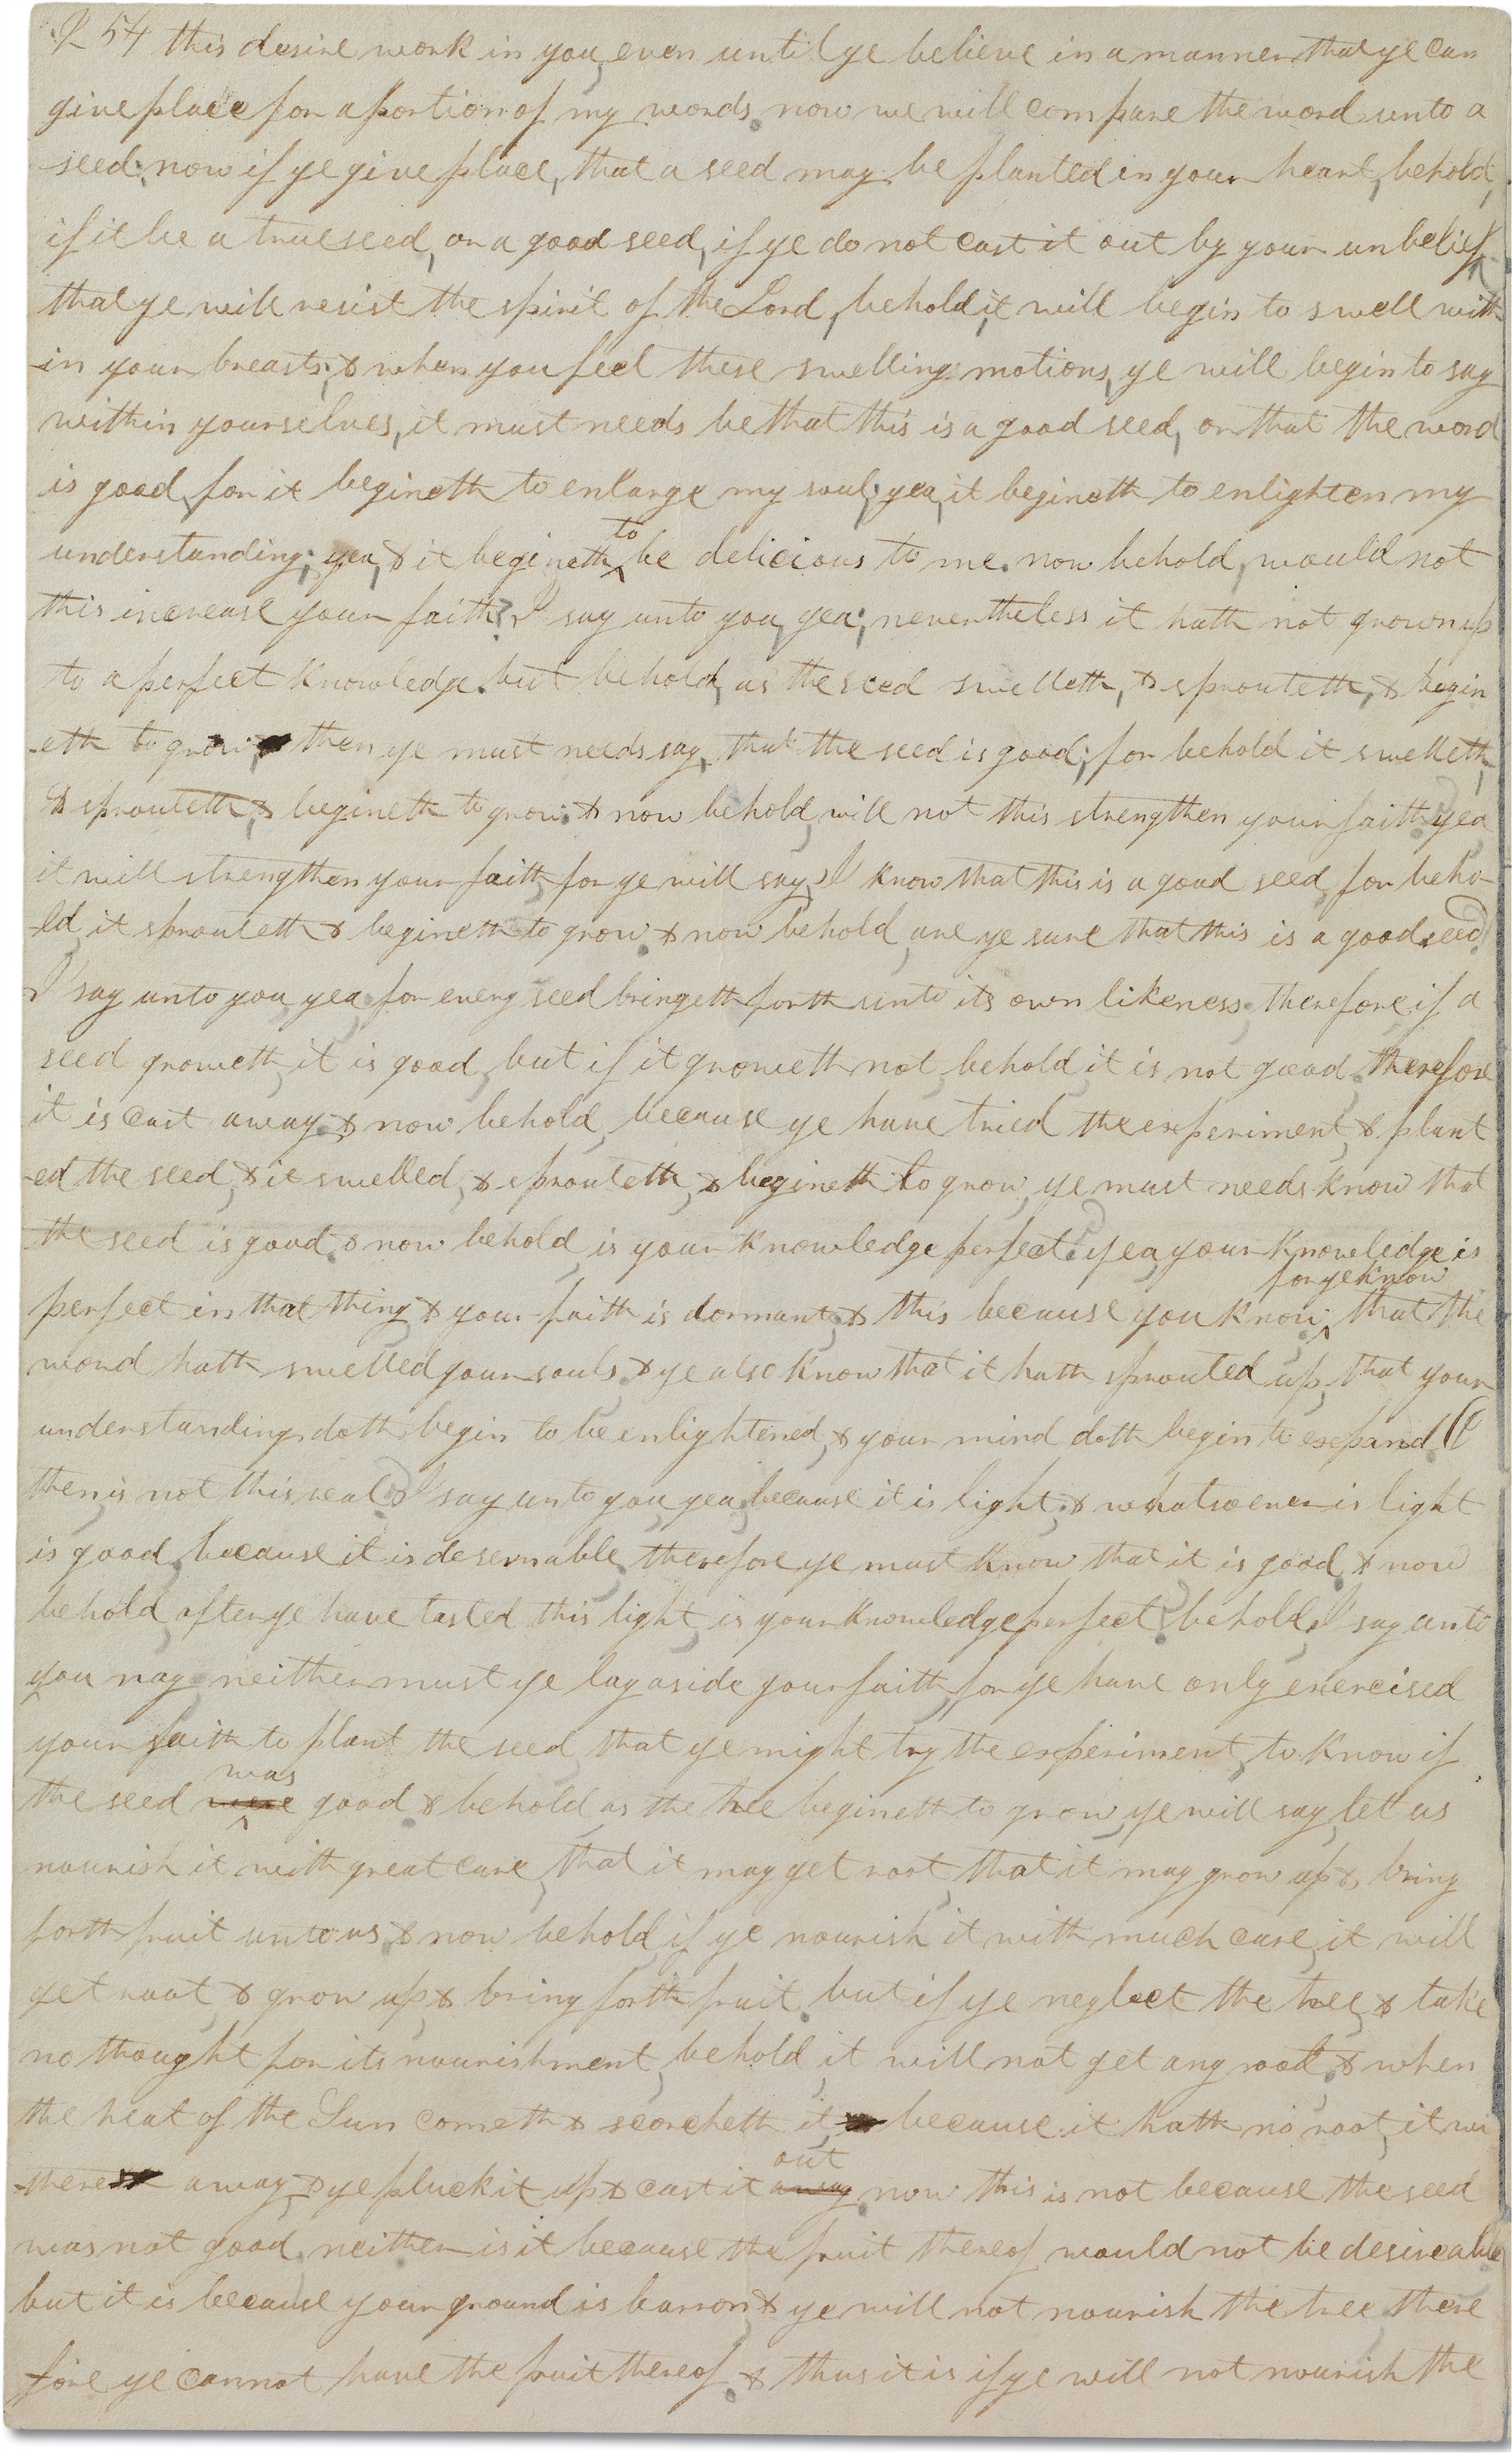 254 this desire work in you, even until ye believe in a manner that ye can
give place for a portion of my words. now we will compare the word unto a
seed. now if ye give place, that a seed may be planted in your heart, behold,
if it be a true seed, or a good seed, if ye do not cast it out by your unbelief,
that ye will resist the spirit of the Lord, behold, it will begin to swell with
-in your breasts; & when you feel these swelling motions, ye will begin to say
within yourselves, it must needs be that this is a good seed, or that the word
is good, for it begineth to enlarge my soul; yea, it begineth to enlighten my
understanding; yea, & it begineth ^to be delicious to me. now behold, would not
this increase your faith? I say unto you, yea; nevertheless it hath not grown up
to a perfect knowledge. but behold, as the seed swelleth, & sprouteth, & begin
-eth to grow, then ye must needs say, that the seed is good; for behold it swelleth,
& sprouteth, & begineth to grow. & now behold, will not this strengthen your faith? yea,
it will strengthen your faith, for ye will say, I know that this is a good seed, for beho-
-ld, it sprouteth & begineth to grow. & now behold, are ye sure that this is a good seed?
I say unto you, yea; for every seed bringeth forth unto its own likeness; therefore if a
seed groweth, it is good, but if it groweth not, behold, it is not good, therefore
it is cast away. & now behold, because ye have tried the experiment, & plant
-ed the seed, & it swelled, & sprouteth, & begineth to grow, ye must needs know that
the seed is good. & now behold, is your knowledge perfect? yea, your knowledge is
perfect in that thing, & your faith is dormant; & this because you know, ^for ye know that the
word hath swelled your souls, & ye also know that it hath sprouted up, that your
understanding doth begin to be enlightened, & your mind doth begin to expand. O
then, is not this real? I say unto you, yea; because it is light; & whatsoever is light
is good, because it is desernable, therefore ye must know that it is good. & now
behold, after ye have tasted this light, is your knowledge perfect? behold, I say unto
you nay; neither must ye lay aside your faith, for ye have only exercised
your faith to plant the seed, that ye might try the experiment, to know if
the seed were ^was good. & behold, as the tree begineth to grow, ye will say, let us
nourish it with great care, that it may get root, that it may grow up, & bring
forth fruit unto us. & now behold, if ye nourish it with much care, it will
get root, & grow up, & bring forth fruit. but if ye neglect the tree, & take
no thought for its nourishment, behold, it will not get any root; & when
the heat of the Sun cometh & scorcheth it, because it hath no root, it wi
-there away, & ye pluck it up & cast it away ^out now this is not because the seed
was not good, neither is it because the fruit thereof would not be desireable
but it is because your ground is barron & ye will not nourish the tree, there
fore ye cannot have the fruit thereof. & thus it is if ye will not nourish the